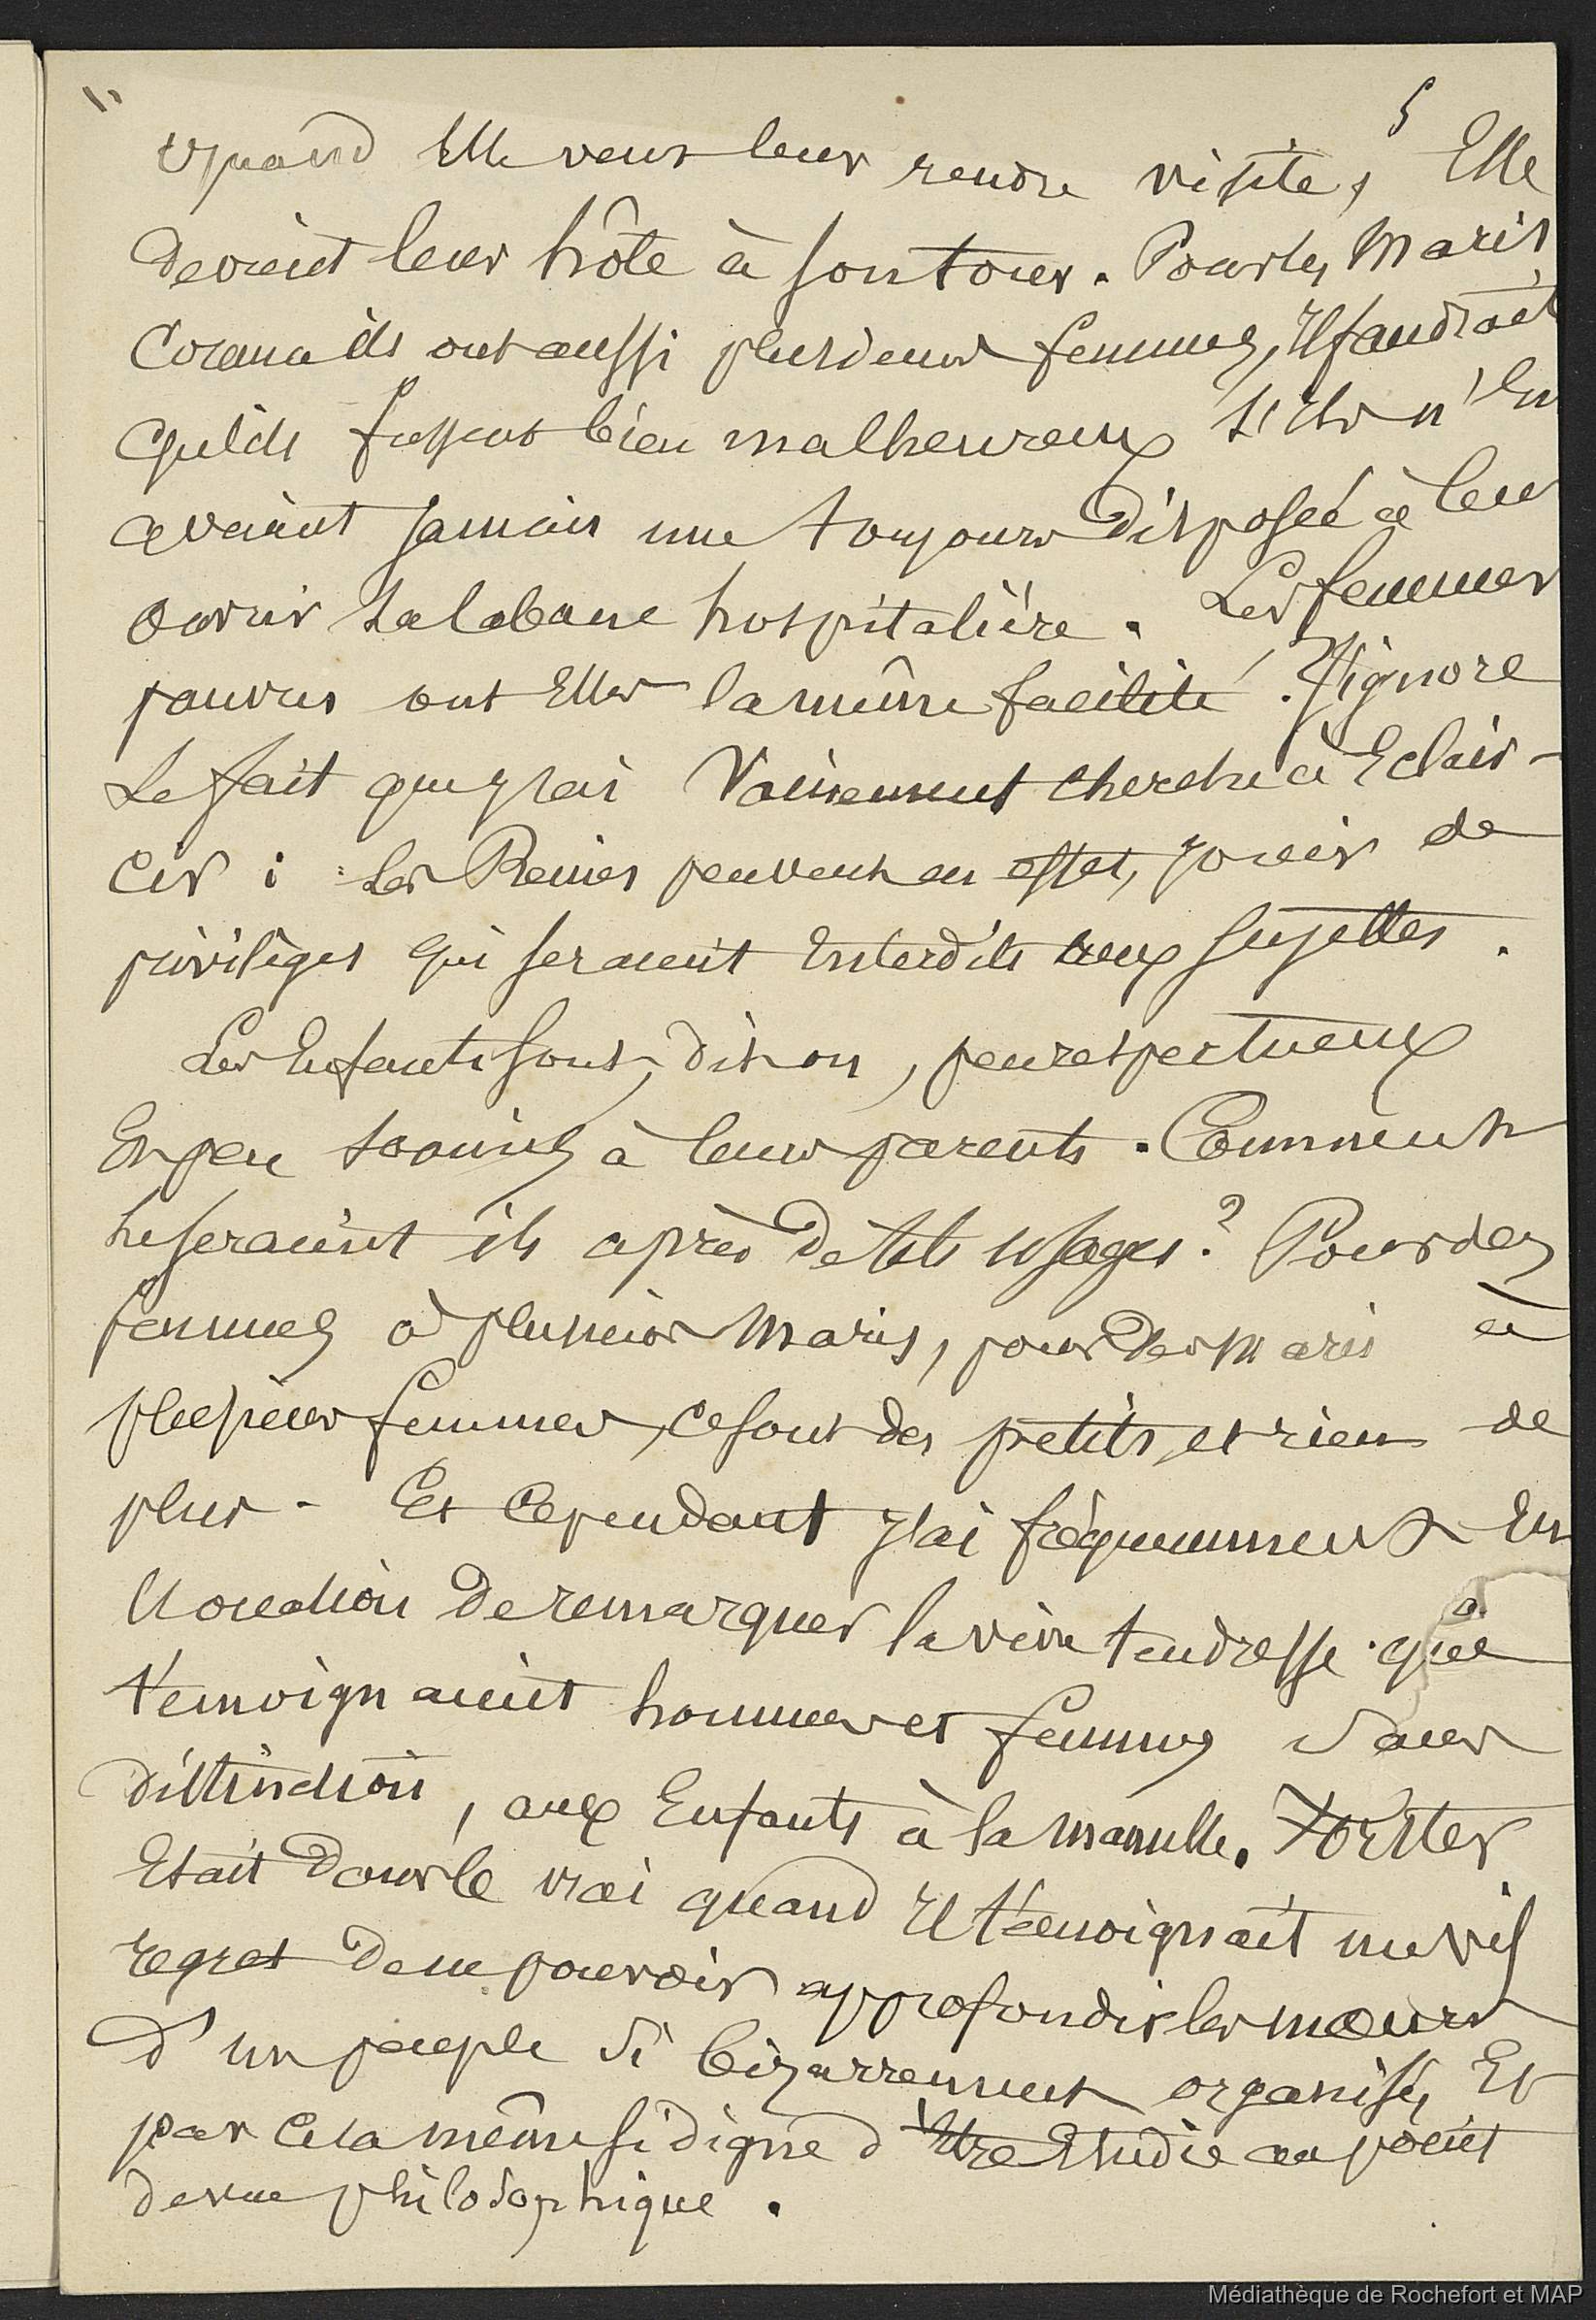 " 5
Quand Elle veut leur rendre visite, Elle
devient leur hôte à son tour. Pour les Maris,
Comme ils ont aussi plusieurs femmes, Il faudrait
qu'ils fussent bien malheureux s'ils n'En
avaient jamais une toujours disposée à leur
ouvrir sa cabane hospitalière. Les femmes
pauvres ont Elles la même facilité ? J'ignore
Le fait que j'ai Vainement cherché à Eclair-
cir : Les Reines peuvent en effet, jouir de
privilèges qui seraient Interdits aux sujettes.
Les Enfants sont, dit on, peu respectueux
Et peu soumis à leurs parents. Comment
le seraient ils après de tels usages ? Pour des
femmes à plusieurs Maris, pour des Maris à
plusieurs femmes, ce sont des petits, et rien de
plus - Et Cependant j'ai fréquemment Eu
l'occasion de remarquer la vive tendresse que
témoignaient hommes et femmes sans
distinction, aux Enfants à la mamelle. Forster
Etait dans le vrai quand Il témoignait un vif
regret de ne pouvoir approfondir les mœurs
d'un peuple si bizarrement organisé, Et
par cela même si digne d'Etre Etudié au point
de vue philosophique.
Médiathèque de Rochefort et MAP